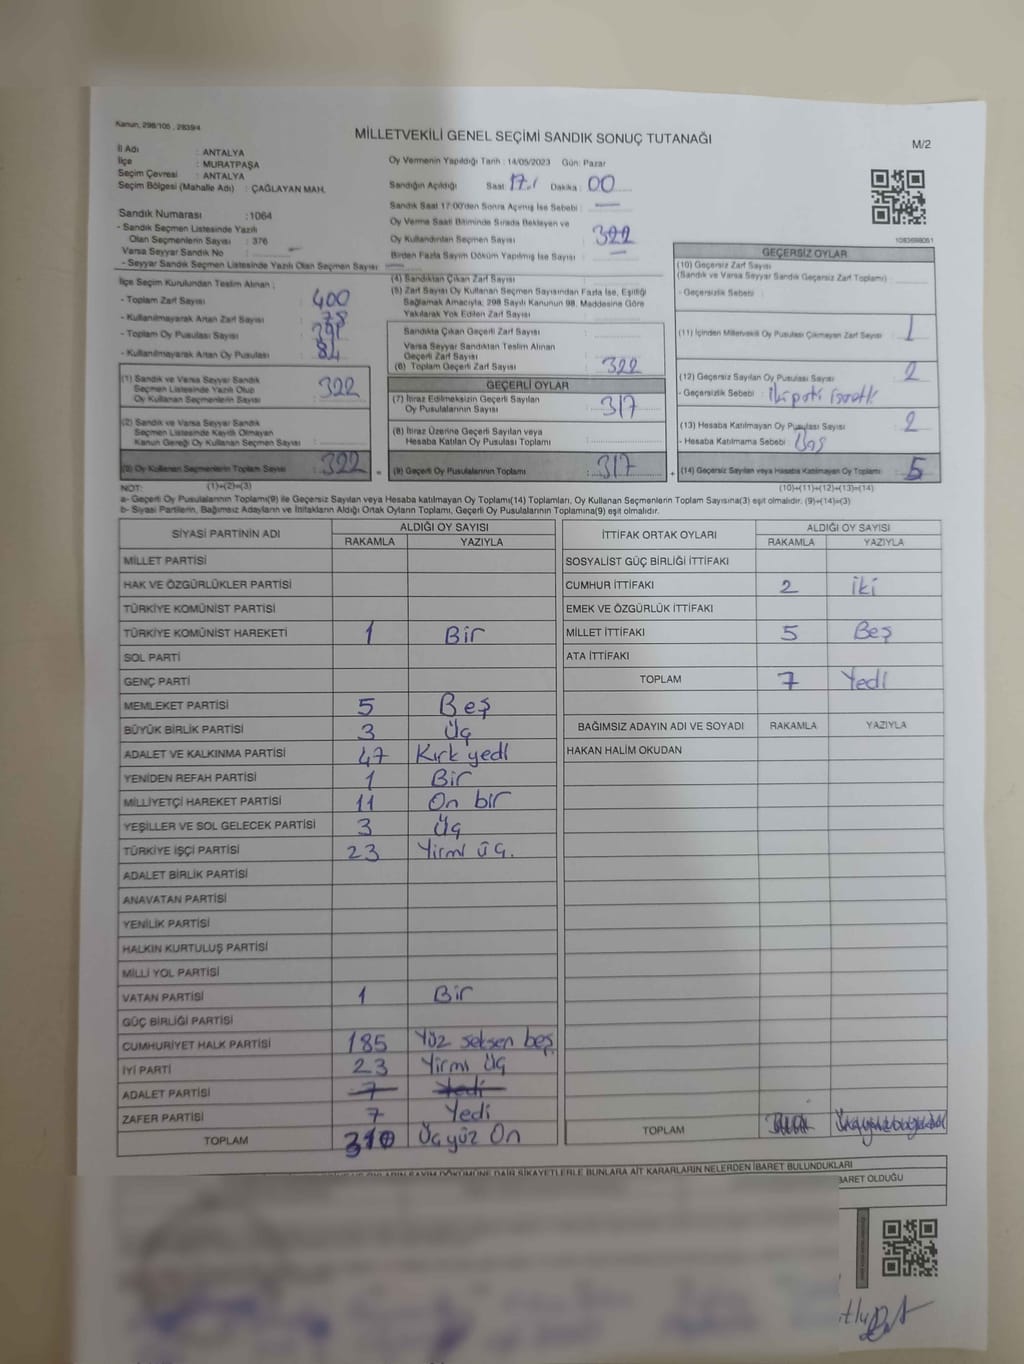 Kanun, 298/105 , 2839/4
MİLLETVEKİLİ GENEL SEÇİMİ SANDIK SONUÇ TUTANAĞI
M/2
İl Adı : ANTALYA
İlçe : MURATPAŞA
Seçim Çevresi : ANTALYA
Seçim Bölgesi (Mahalle Adı) : ÇAĞLAYAN MAH.
Sandık Numarası :1064
- Sandık Seçmen Listesinde Yazılı
Olan Seçmenlerin Sayısı : 376
Varsa Seyyar Sandık No : —
- Seyyar Sandık Seçmen Listesinde Yazılı Olan Seçmen Sayısı : —
İlçe Seçim Kurulundan Teslim Alınan ;
- Toplam Zarf Sayısı : 400
- Kullanılmayarak Artan Zarf Sayısı : 78
- Toplam Oy Pusulası Sayısı :
- Kullanılmayarak Artan Oy Pusulası :
(1) Sandık ve Varsa Seyyar Sandık
Seçmen Listesinde Yazılı Olup
Oy Kullanan Seçmenlerin Sayısı : 322
(2) Sandık ve Varsa Seyyar Sandık
Seçmen Listesinde Kayıtlı Olmayan
Kanun Gereği Oy Kullanan Seçmen Sayısı :
(3) Oy Kullanan Seçmenlerin Toplam Sayısı : 322
Oy Vermenin Yapıldığı Tarih : 14/05/2023 Gün: Pazar
Sandığın Açıldığı Saat : 17 Dakika : 00
Sandık Saat 17:00'den Sonra Açılmış İse Sebebi : —
Oy Verme Saati Bitiminde Sırada Bekleyen ve
Oy Kullandırılan Seçmen Sayısı : 322
Birden Fazla Sayım Döküm Yapılmış İse Sayısı : —
(4) Sandıktan Çıkan Zarf Sayısı :
(5) Zarf Sayısı Oy Kullanan Seçmen Sayısından Fazla İse, Eşitliği
Sağlamak Amacıyla; 298 Sayılı Kanunun 98. Maddesine Göre
Yakılarak Yok Edilen Zarf Sayısı :
Sandıkta Çıkan Geçerli Zarf Sayısı :
Varsa Seyyar Sandıktan Teslim Alınan
Geçerli Zarf Sayısı :
(6) Toplam Geçerli Zarf Sayısı : 322
GEÇERLİ OYLAR
(7) İtiraz Edilmeksizin Geçerli Sayılan
Oy Pusulalarının Sayısı : 317
(8) İtiraz Üzerine Geçerli Sayılan veya
Hesaba Katılan Oy Pusulası Toplamı :
= (9) Geçerli Oy Pusulalarının Toplamı : 317
1083698061
GEÇERSİZ OYLAR
(10) Geçersiz Zarf Sayısı
(Sandık ve Varsa Seyyar Sandık Geçersiz Zarf Toplamı) :
- Geçersizlik Sebebi :
(11) İçinden Milletvekili Oy Pusulası Çıkmayan Zarf Sayısı : 1
(12) Geçersiz Sayılan Oy Pusulası Sayısı : 2
- Geçersizlik Sebebi :
(13) Hesaba Katılmayan Oy Pusulası Sayısı : 2
- Hesaba Katılmama Sebebi :
+ (14) Geçersiz Sayılan veya Hesaba Katılmayan Oy Toplamı : 5
NOT: (1)+(2)=(3)
(10)+(11)+(12)+(13)=(14)
a- Geçerli Oy Pusulalarının Toplamı(9) ile Geçersiz Sayılan veya Hesaba katılmayan Oy Toplamı(14) Toplamları, Oy Kullanan Seçmenlerin Toplam Sayısına(3) eşit olmalıdır. (9)+(14)=(3)
b- Siyasi Partilerin, Bağımsız Adayların ve İttifakların Aldığı Ortak Oyların Toplamı, Geçerli Oy Pusulalarının Toplamına(9) eşit olmalıdır.
SİYASİ PARTİNİN ADI ALDIĞI OY SAYISI
RAKAMLA YAZIYLA
MİLLET PARTİSİ
HAK VE ÖZGÜRLÜKLER PARTİSİ
TÜRKİYE KOMÜNİST PARTİSİ
TÜRKİYE KOMÜNİST HAREKETİ 1 Bir
SOL PARTİ
GENÇ PARTİ
MEMLEKET PARTİSİ 5 Beş
BÜYÜK BİRLİK PARTİSİ 3 Üç
ADALET VE KALKINMA PARTİSİ 47 Kırk yedi
YENİDEN REFAH PARTİSİ 1 Bir
MİLLİYETÇİ HAREKET PARTİSİ 11 On bir
YEŞİLLER VE SOL GELECEK PARTİSİ 3 Üç
TÜRKİYE İŞÇİ PARTİSİ 23 Yirmi üç.
ADALET BİRLİK PARTİSİ
ANAVATAN PARTİSİ
YENİLİK PARTİSİ
HALKIN KURTULUŞ PARTİSİ
MİLLİ YOL PARTİSİ
VATAN PARTİSİ 1 Bir
GÜÇ BİRLİĞİ PARTİSİ
CUMHURİYET HALK PARTİSİ 185 Yüz seksen beş
İYİ PARTİ 23 Yirmi Üç
ADALET PARTİSİ 7 Yedi
ZAFER PARTİSİ 7 Yedi
TOPLAM 310 Üçyüz On
İTTİFAK ORTAK OYLARI ALDIĞI OY SAYISI
RAKAMLA YAZIYLA
SOSYALİST GÜÇ BİRLİĞİ İTTİFAKI
CUMHUR İTTİFAKI 2 İki
EMEK VE ÖZGÜRLÜK İTTİFAKI
MİLLET İTTİFAKI 5 Beş
ATA İTTİFAKI
TOPLAM 7 Yedi
BAĞIMSIZ ADAYIN ADI VE SOYADI RAKAMLA YAZIYLA
HAKAN HALİM OKUDAN
TOPLAM
OYLARIN SAYIM DÖKÜMÜNE DAİR ŞİKAYETLERLE BUNLARA AİT KARARLARIN NELERDEN İBARET BULUNDUKLARI
BARET OLDUĞU